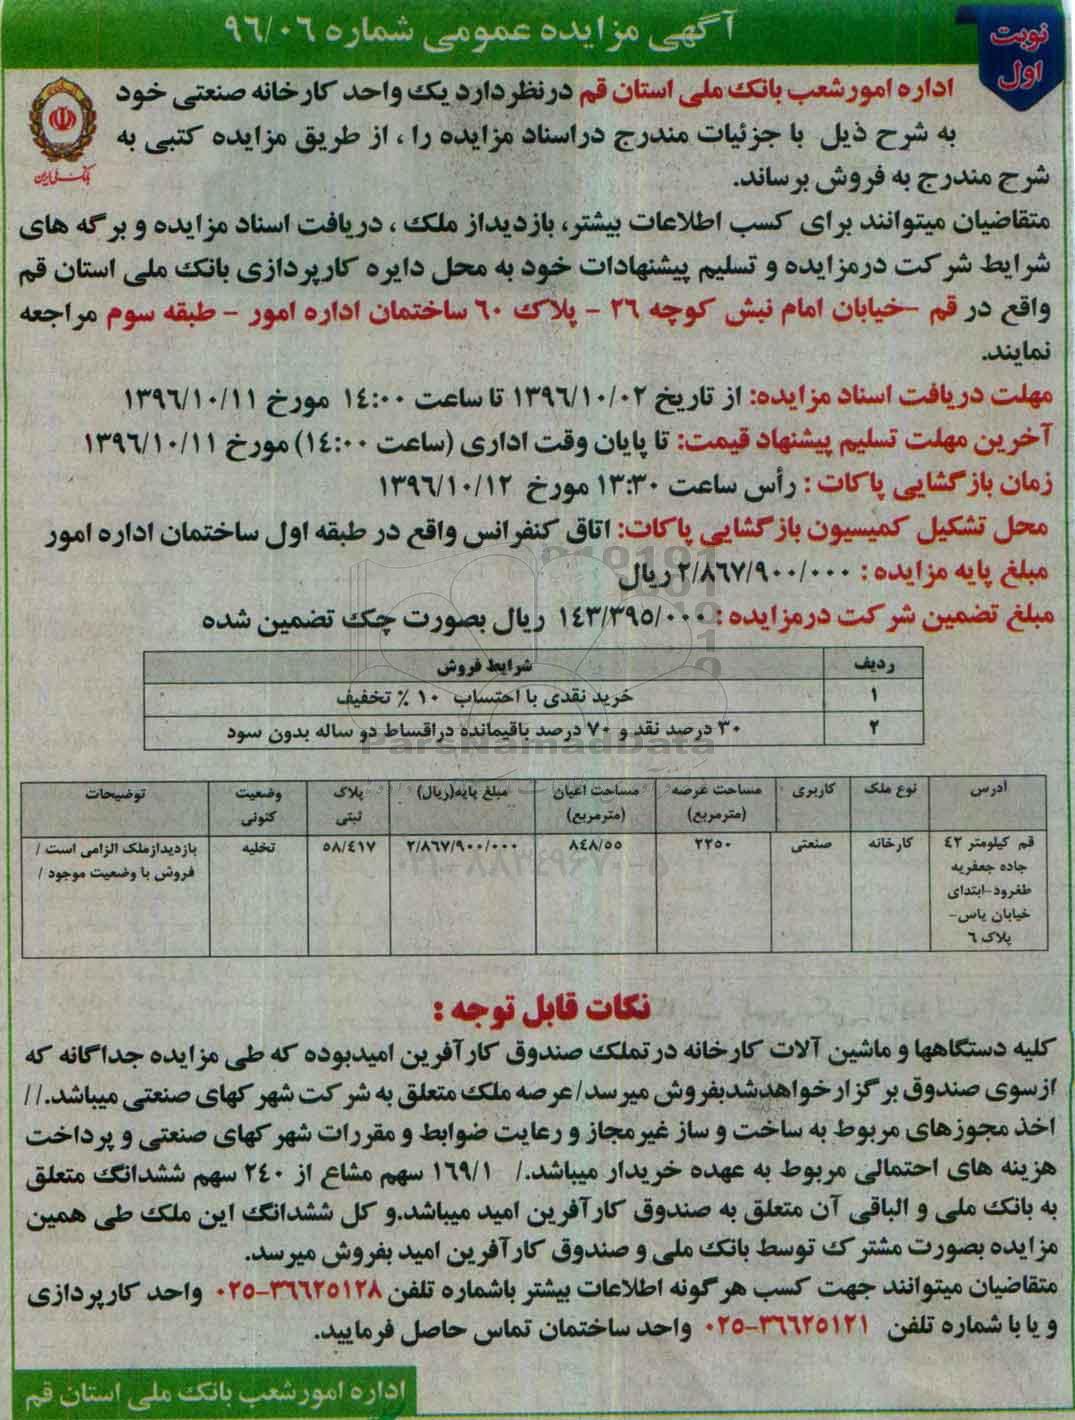 آگهی مزایده عمومی شماره ۹۶/۰۶
نوبت
اول
اداره امور شعب بانک ملی استان قم درنظردارد یک واحد کارخانه صنعتی خود
به شرح ذیل با جزئیات مندرج دراسناد مزایده را ، از طریق مزایده کتبی به
شرح مندرج به فروش برساند.
بانک ملی ایران
متقاضیان میتوانند برای کسب اطلاعات بیشتر، بازدیداز ملک ، دریافت اسناد مزایده و برگه های
شرایط شرکت درمزایده و تسلیم پیشنهادات خود به محل دایره کارپردازی بانک ملی استان قم
واقع در قم -خیابان امام نبش کوچه ۲۶ - پلاک ۶۰ ساختمان اداره امور - طبقه سوم مراجعه
نمایند.
مهلت دریافت اسناد مزایده: از تاریخ ۱۳۹۶/۱۰/۰۲ تا ساعت ۱۴:۰۰ مورخ ۱۳۹۶/۱۰/۱۱
آخرین مهلت تسلیم پیشنهاد قیمت: تا پایان وقت اداری (ساعت ۱۴:۰۰) مورخ ۱۳۹۶/۱۰/۱۱
زمان بازگشایی پاکات : رأس ساعت ۱۳:۳۰ مورخ ۱۳۹۶/۱۰/۱۲
محل تشکیل کمیسیون بازگشایی پاکات: اتاق کنفرانس واقع در طبقه اول ساختمان اداره امور
مبلغ پایه مزایده : ۲/۸۶۷/۹۰۰/۰۰۰ ریال
مبلغ تضمین شرکت درمزایده : ۱۴۳/۳۹۵/۰۰۰ ریال بصورت چک تضمین شده
ردیف شرایط فروش
۱ خرید نقدی با احتساب ۱۰ % تخفیف
۲ ۳۰ درصد نقد و ۷۰ درصد باقیمانده دراقساط دو ساله بدون سود
ParsNamadData
آدرس نوع ملک کاربری مساحت عرصه (مترمربع) مساحت اعیان (مترمربع) مبلغ پایه(ریال) پلاک ثبتی وضعیت کنونی توضیحات
قم کیلومتر ۴۲ کارخانه صنعتی ۲۲۵۰ ۸۴۸/۵۵ ۲/۸۶۷/۹۰۰/۰۰۰ ۵۸/۴۱۷ تخلیه بازدیدازملک الزامی است /
جاده جعفریه فروش با وضعیت موجود /
طغرود-ابتدای
خیابان یاس-
پلاک ۶
نکات قابل توجه :
کلیه دستگاهها و ماشین آلات کارخانه درتملک صندوق کارآفرین امیدبوده که طی مزایده جداگانه که
ازسوی صندوق برگزارخواهدشدبفروش میرسد/عرصه ملک متعلق به شرکت شهرکهای صنعتی میباشد.//
اخذ مجوزهای مربوط به ساخت و ساز غیرمجاز و رعایت ضوابط و مقررات شهرکهای صنعتی و پرداخت
هزینه های احتمالی مربوط به عهده خریدار میباشد./ ۱۶۹/۱ سهم مشاع از ۲۴۰ سهم ششدانگ متعلق
به بانک ملی و الباقی آن متعلق به صندوق کارآفرین امید میباشد.و کل ششدانگ این ملک طی همین
مزایده بصورت مشترک توسط بانک ملی و صندوق کارآفرین امید بفروش میرسد.
متقاضیان میتوانند جهت کسب هرگونه اطلاعات بیشتر باشماره تلفن ۳۶۶۲۵۱۲۸-۰۲۵ واحد کارپردازی
و یا با شماره تلفن ۳۶۶۲۵۱۲۱-۰۲۵ واحد ساختمان تماس حاصل فرمایید.
اداره امور شعب بانک ملی استان قم